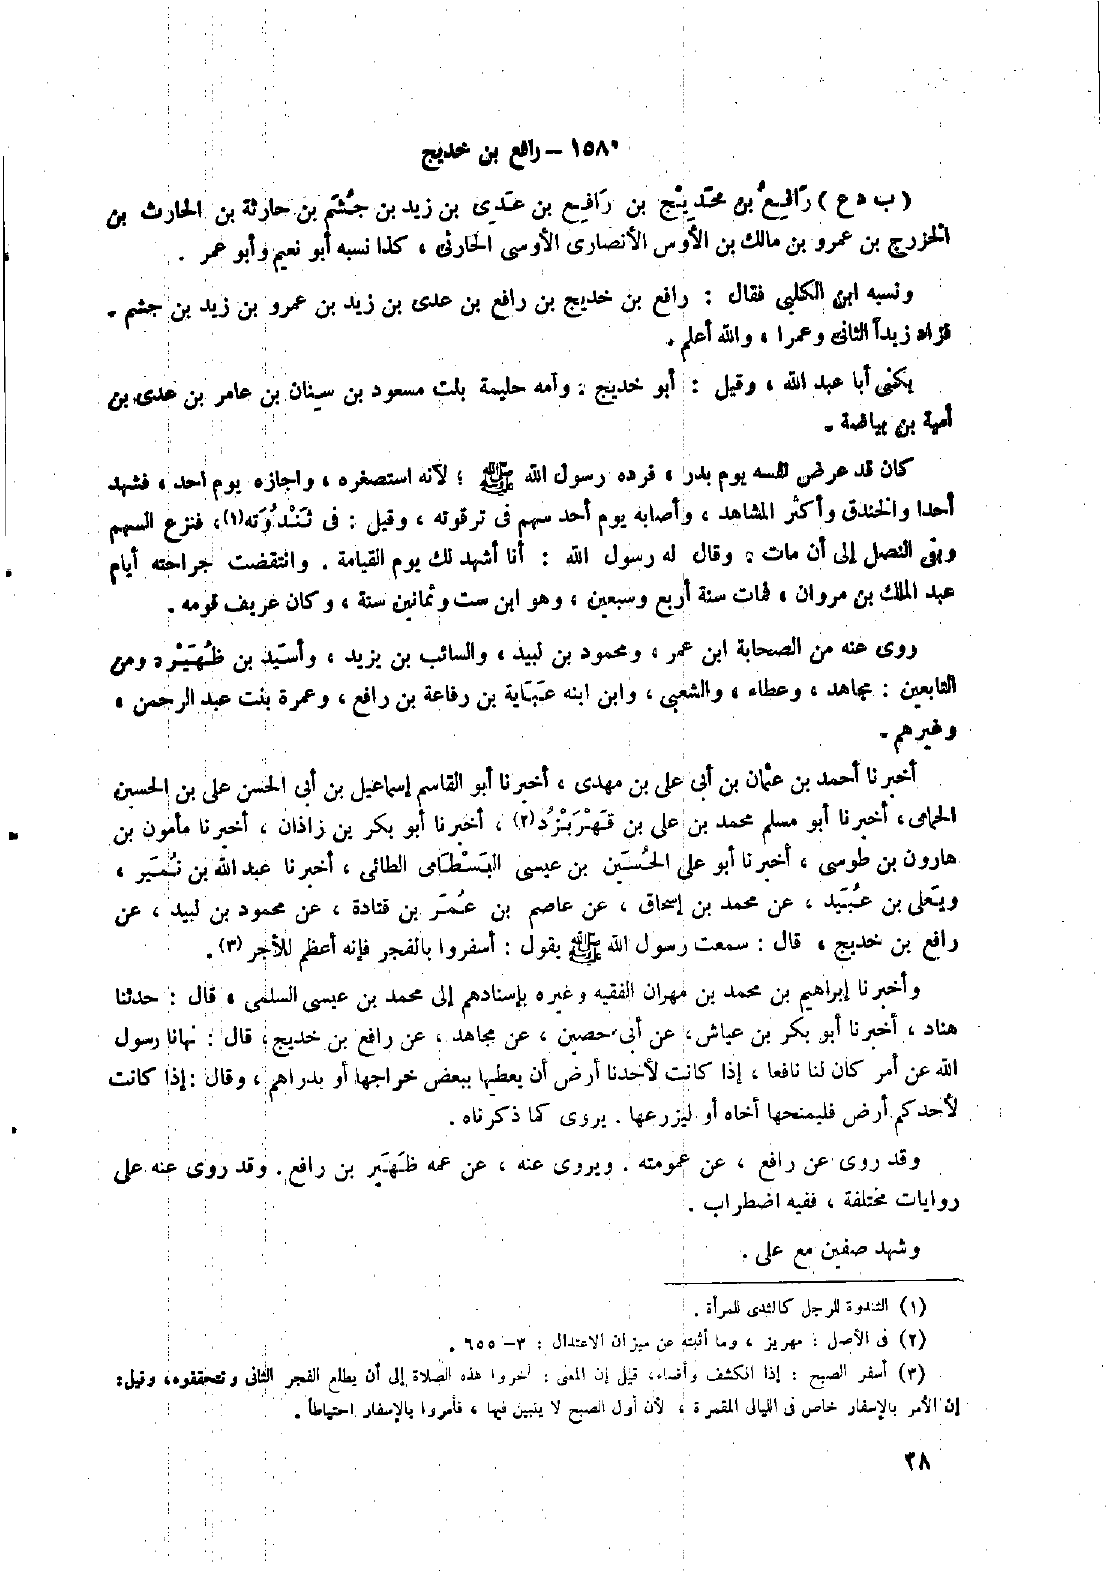 ١٥٨٠ – رافع بن خديج
( ب د ع ) رَافِعُ بن خَدِيْج بن رَافِع بن عَدِى بن زيد بن جُشَم بن حارثة بن الحارث بن
الخزرج بن عمرو بن مالك بن الأوس الأنصارى الأوسى الحارثى ، كذا نسبه أبو نعيم وأبو عمر .
ونسبه ابن الكلبى فقال : رافع بن خديج بن رافع بن عدى بن زيد بن عمرو بن زيد بن جشم .
فزاد زيداً الثانى وعمرا ، والله أعلم .
يكنى أبا عبد الله ، وقيل : أبو خديج . وأمه حليمة بنت مسعود بن سينان بن عامر بن عدى بن
أمية بن بياضة .
كان قد عرض نفسه يوم بدر ، فرده رسول الله ﷺ ؛ لأنه استصغره ، وأجازه يوم أحد ، فشهد
أحدا والخندق وأكثر المشاهد ، وأصابه يوم أحد سهم فى ترقوته ، وقيل : فى ثَنْدُوَته(١)، فنزع السهم
وبقى النصل إلى أن مات ، وقال له رسول الله : أنا أشهد لك يوم القيامة . وانتقضت جراحته أيام
عبد الملك بن مروان ، فمات سنة أربع وسبعين ، وهو ابن ست وثمانين سنة ، وكان عريف قومه .
روى عنه من الصحابة ابن عمر ، ومحمود بن لبيد ، والسائب بن يزيد ، وأسَيْد بن ظُهَيْر ، ومن
التابعين : مجاهد ، وعطاء ، والشعبى ، وابن ابنه عَبَاية بن رفاعة بن رافع ، وعمرة بنت عبد الرحمن ،
وغيرهم .
أخبرنا أحمد بن عثمان بن أبى على بن مهدى ، أخبرنا أبو القاسم إسماعيل بن أبى الحسن على بن الحسين
الحمامى، أخبرنا أبو مسلم محمد بن على بن مَهْرَبَزُد(٢) ، أخبرنا أبو بكر بن زاذان ، أخبرنا مأمون بن
هارون بن طوسى ، أخبرنا أبو على الحُسَين بن عيسى البَسْطَامى الطائى ، أخبرنا عبد الله بن نُمَير ،
ويَعلى بن عُبَيد ، عن محمد بن إسحاق ، عن عاصم بن عُمَر بن قتادة ، عن محمود بن لبيد ، عن
رافع بن خديج ، قال : سمعت رسول الله ﷺ يقول : أسفروا بالفجر فإنه أعظم للأجر (٣) .
وأخبرنا إبراهيم بن محمد بن مهران الفقيه وغيره بإسنادهم إلى محمد بن عيسى السلمى ، قال : حدثنا
هناد ، أخبرنا أبو بكر بن عياش، عن أبى حصين ، عن مجاهد ، عن رافع بن خديج، قال : نهانا رسول
الله عن أمر كان لنا نافعا ، إذا كانت لأحدنا أرض أن يعطيها ببعض خراجها أو بدراهم ، وقال : إذا كانت
لأحدكم أرض فليمنحها أخاه أو ليزرعها . يروى كما ذكرناه .
وقد روى عن رافع ، عن عمومته . ويروى عنه ، عن عمه ظَهَير بن رافع . وقد روى عنه على
روايات مختلفة ، ففيه اضطراب .
وشهد صفين مع على .
(١) الثندوة للرجل كالثدى للمرأة .
(٢) فى الأصل : مهريز ، وما أثبته عن ميزان الاعتدال : ٣–٦٥٥ .
(٣) أسفر الصبح : إذا انكشف وأضاء، قيل إن المعنى : أخروا هذه الصلاة إلى أن يطلع الفجر الثانى وتتحققوه، وقيل:
إن الأمر بالإسفار خاص فى الليالى المقمرة ، لأن أول الصبح لا يتبين فيها ، فأمروا بالإسفار احتياطاً .
٣٨